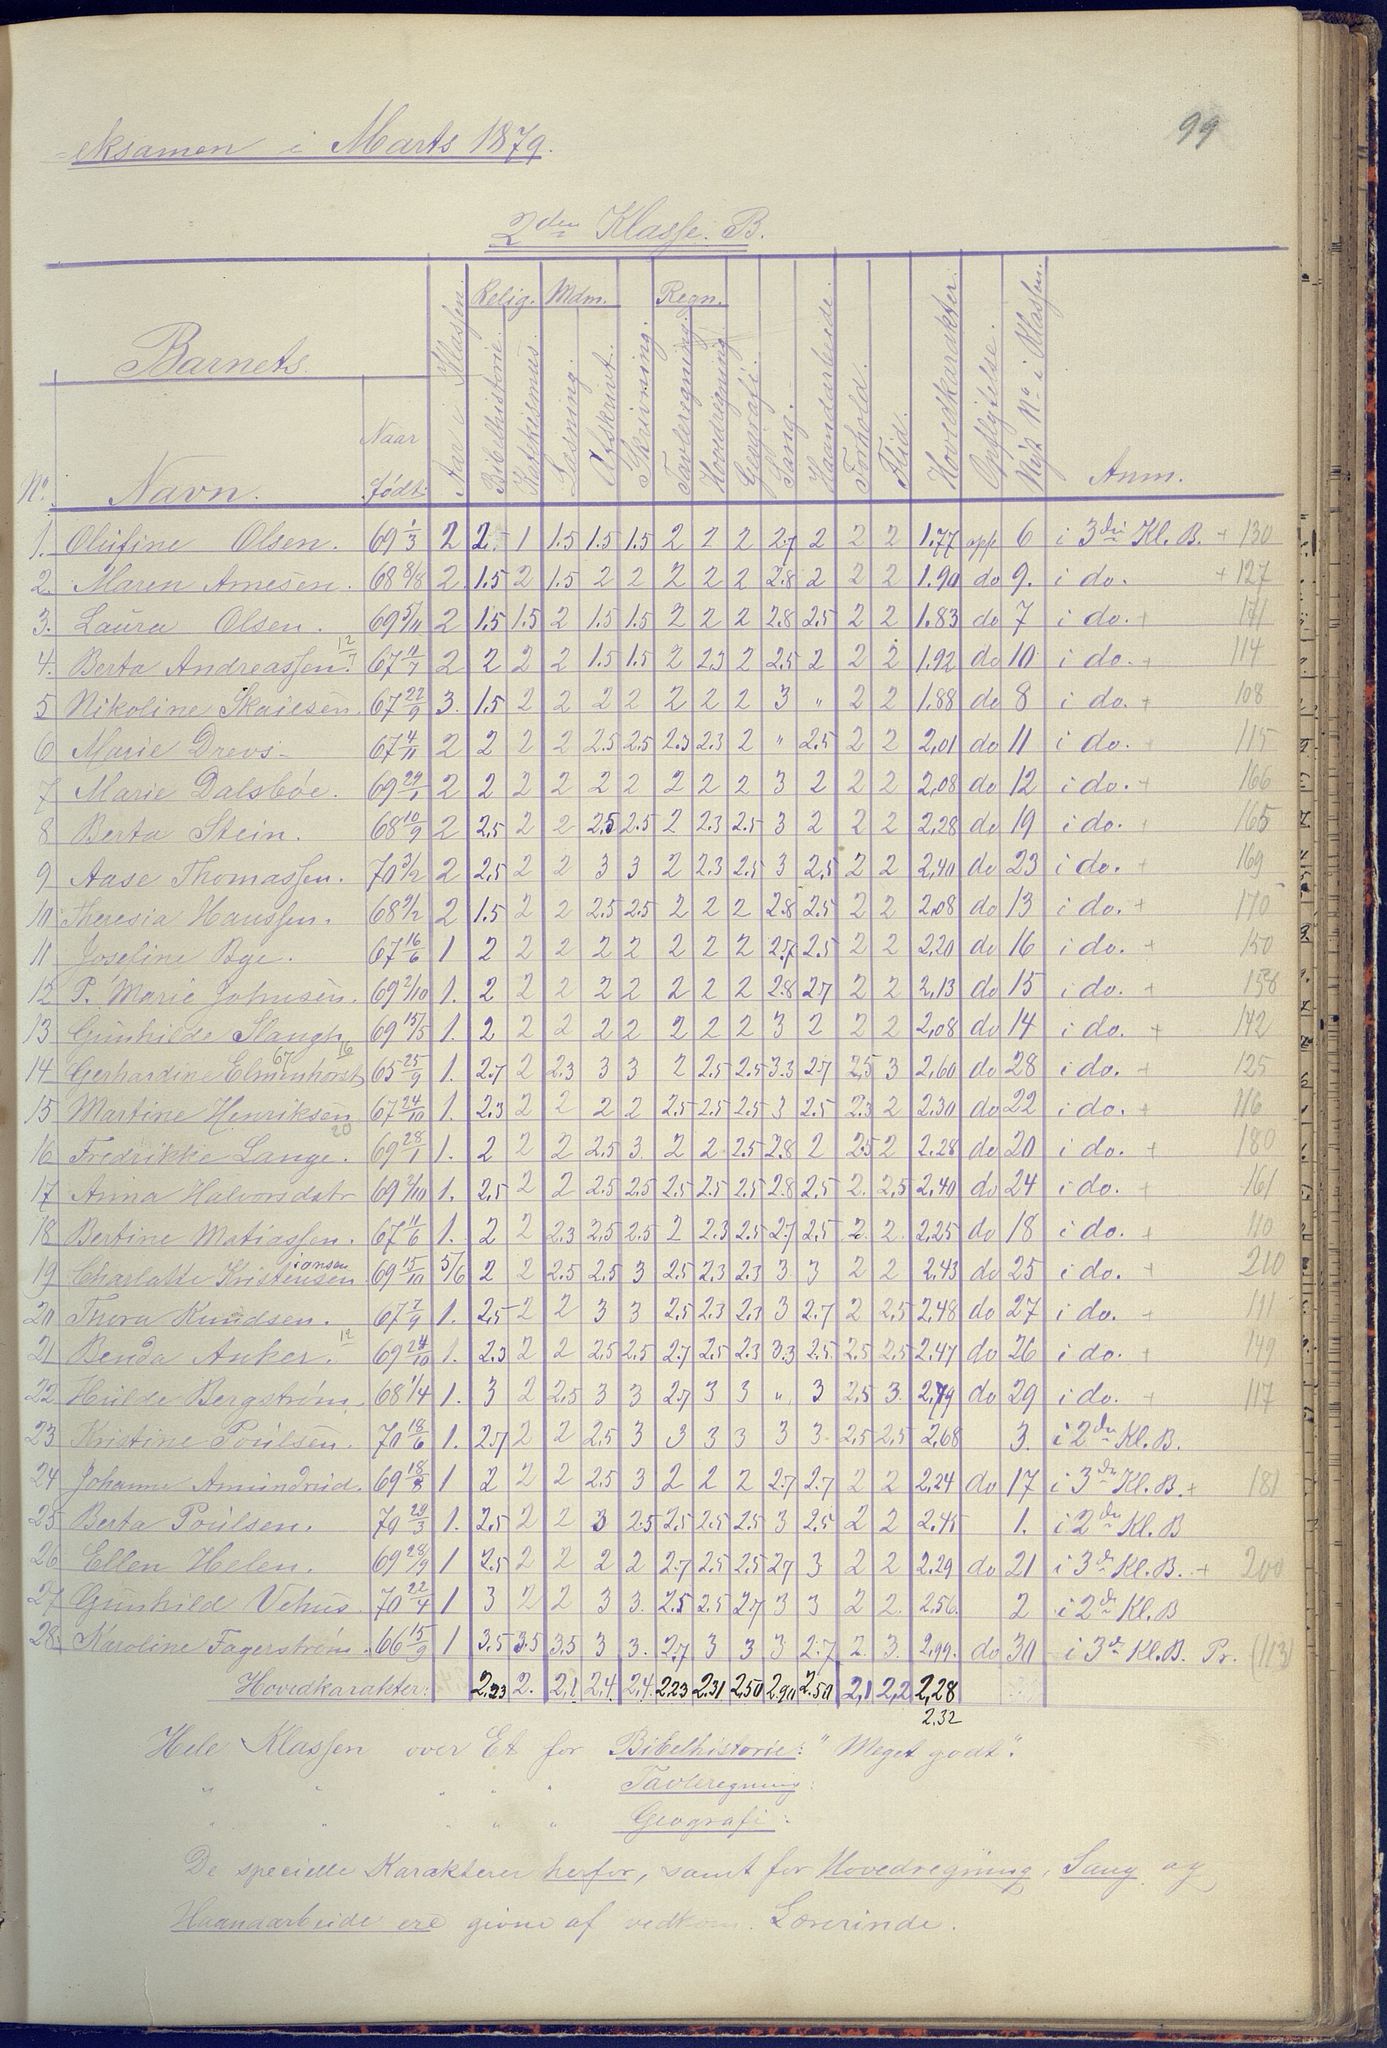 99
=eksamen i Marts 1879.
2den Klasse. B.
Barnets
No. Navn. Naar født. Aar i Klassen. Relig. Bibelhistorie. Katekismus. Mdm. Læsning. Afskrivt. Skrivning. Regn. Tavleregning. Hovedregning. Geografi. Sang. Haandarbeide. Forhold. Flid. Hovedkarakter. Opflytelse. Nyt No i Klassen. Anm.
1. Olufine Olsen. 69 1/3 2 2. 1 1.5 1.5 1.5 2 2 2 2.7 2 2 2 1.77 opf. 6 i 3die Kl. B. + 130
2. Maren Arnesen. 68 8/8 2. 1.5 2 1.5 2 2 2 2 2 2.8 2 2 2 1.90 do 9. i do. + 127
3. Laura Olsen. 69 5/11 2 1.5 1.5 2 1.5 1.5 2 2 2 2.8 2.5 2 2 1.83 do 7 i do. + 171
4. Berta Andreassen. 12/7 67 11/7 2 2 2 2 1.5 1.5 2 2.3 2 2.5 2 2 2 1.92 do 10 i do. + 114
5 Nikoline Skailsen. 67 22/9 3. 1.5 2 2 2 2 2 2 2 3 " 2 2 1.88 do 8 i do. + 108
6 Marie Drevs 67 4/11 2 2 2 2 2.5 2.5 2.3 2.3 2 " 2.5 2 2 2,01 do 11 i do. + 115
7 Marie Dalsbøe. 69 29/1 2 2 2 2 2 2 2 2 2 3 2 2 2 2,08 do 12 i do. + 166
8 Berta Stein. 68 10/9 2 2,5 2 2 2.5 2.5 2 2.3 2.5 3 2 2 2 2,28 do 19 i do. + 165
9 Aase Thomassen. 70 3/2 2 2,5 2 2 3 3 2 2.3 2.5 3 2,5 2 2 2,40 do 23 i do. + 169
10 Theresia Hanssen. 68 9/2 2 1.5 2 2 2.5 2.5 2 2 2 2.8 2.5 2 2 2,08 do 13 i do. + 170
11 Joseline Bge. 67 16/6 1 2 2 2 2 2 2 2 2 2.7 2.5 2 2 2,20 do 16 i do. + 150
12 P. Marie Johnsen. 69 2/10 1. 2 2 2 2 2 2 2 2 2.8 2.7 2 2 2,13 do 15 i do. + 158
13 Gunhilde Slangh 69 15/5 1. 2 2 2 2 2 2 2 2 3 2 2 2 2,08 do 14 i do. + 172
14 Gerhardine Elmenhorst 67 16 65 25/9 1. 2.7 2 2.3 3 3 2 2.5 2.5 3.3 2.7 2,5 3 2,60 do 28 i do. + 125
15 Martine Henriksen 67 24/10 1. 2.3 2 2 2 2 2.5 2.5 2.5 3 2.5 2.3 2 2.30 do 22 i do. + 116
16 Fredrikke Lange. 20 69 28/1 1. 2 2 2 2.5 3. 2 2 2.5 2.8 2 2.5 2 2.28 do 20 i do. + 180
17 Anna Halvorsdatr 69 2/10 1. 2,5 2 2 2.5 2.5 2.5 2.5 2.5 2.8 2,5 2. 2,5 2,40 do 24 i do. + 161
18 Bertine Matiassen. 67 11/6 1. 2 2 2.3 2,5 2.5 2 2.3 2.5 2.7 2,5 2. 2. 2,25 do 18 i do. + 110
19 Charlatte Kristensen ionsen 69 15/10 5/6 2 2 2.5 2.5 3 2.5 2.3 2.3 3 3 2 2 2.43 do 25 i do. + 210
20 Thora Knudsen. 67 7/9 1. 2,5 2 2 3 3 2.5 2.3 2.3 3 2.7 2 2,5 2.48 do 27 i do. + 111
21 Benda Anker. 12 69 24/10 1. 2.3 2 2 2.5 2.5 2.7 2.5 2.3 3.3 2.5 2.5 2.5 2.47 do 26 i do. + 149
22 Hulde Bergstrøm. 68 1/4 1. 3 2 2.5 3 3 2.7 3 3 " 3 2,5 3. 2,79 do 29 i do. + 117
23 Kristine Poulsen. 70 18/6 1. 2.7 2 2 2,5 3 3 3 3 3 3 2,5 2,5 2,68 3. i 2den Kl. B.
24 Johanne Amundrud. 69 18/8 1 2 2 2 2.5 3 2 2 2 2.7 2.7 2 2 2,24 do 17 i 3die Kl. B. + 181
25 Berta Poulsen. 70 29/3 1. 2.5 2 2 3 2.5 2.5 2.5 2.5 3 2.5 2 2 2.45 1. i 2den Kl. B
26 Ellen Helen. 69 28/9 1 2.5 2 2 2 2 2.7 2.5 2.5 2.7 3 2 2 2.29 do 21 i 3die Kl. B. + 200
27 Gunhild Vehus. 70 22/4 1 3 2 2 3 3. 2.5 2.5 2.7 3 3 2 2. 2.56. 2 i 2den Kl. B
28. Karoline Fagerstrøm. 66 15/9 1 3.5 3.5 3.5 3 3. 2.7 3 3 3 2.7 2. 3. 2,99. do 30 i 3die Kl. B. Pr. (113)
Hovedkarakter: 2,23 2. 2,1. 2,4. 2,4. 2.23 2.31 2,50 2.90 2.50 2,1 2,2 2,28
2.32
Hele Klassen over Et for Bibelhistorie: "Meget godt".
" " " " " Tavleregning:
" " " " " Geografi:
De specielle Karakterer herfor, samt for Hovedregning, Sang og
Haandarbeide ere givne af vedkom. Lærerinde.